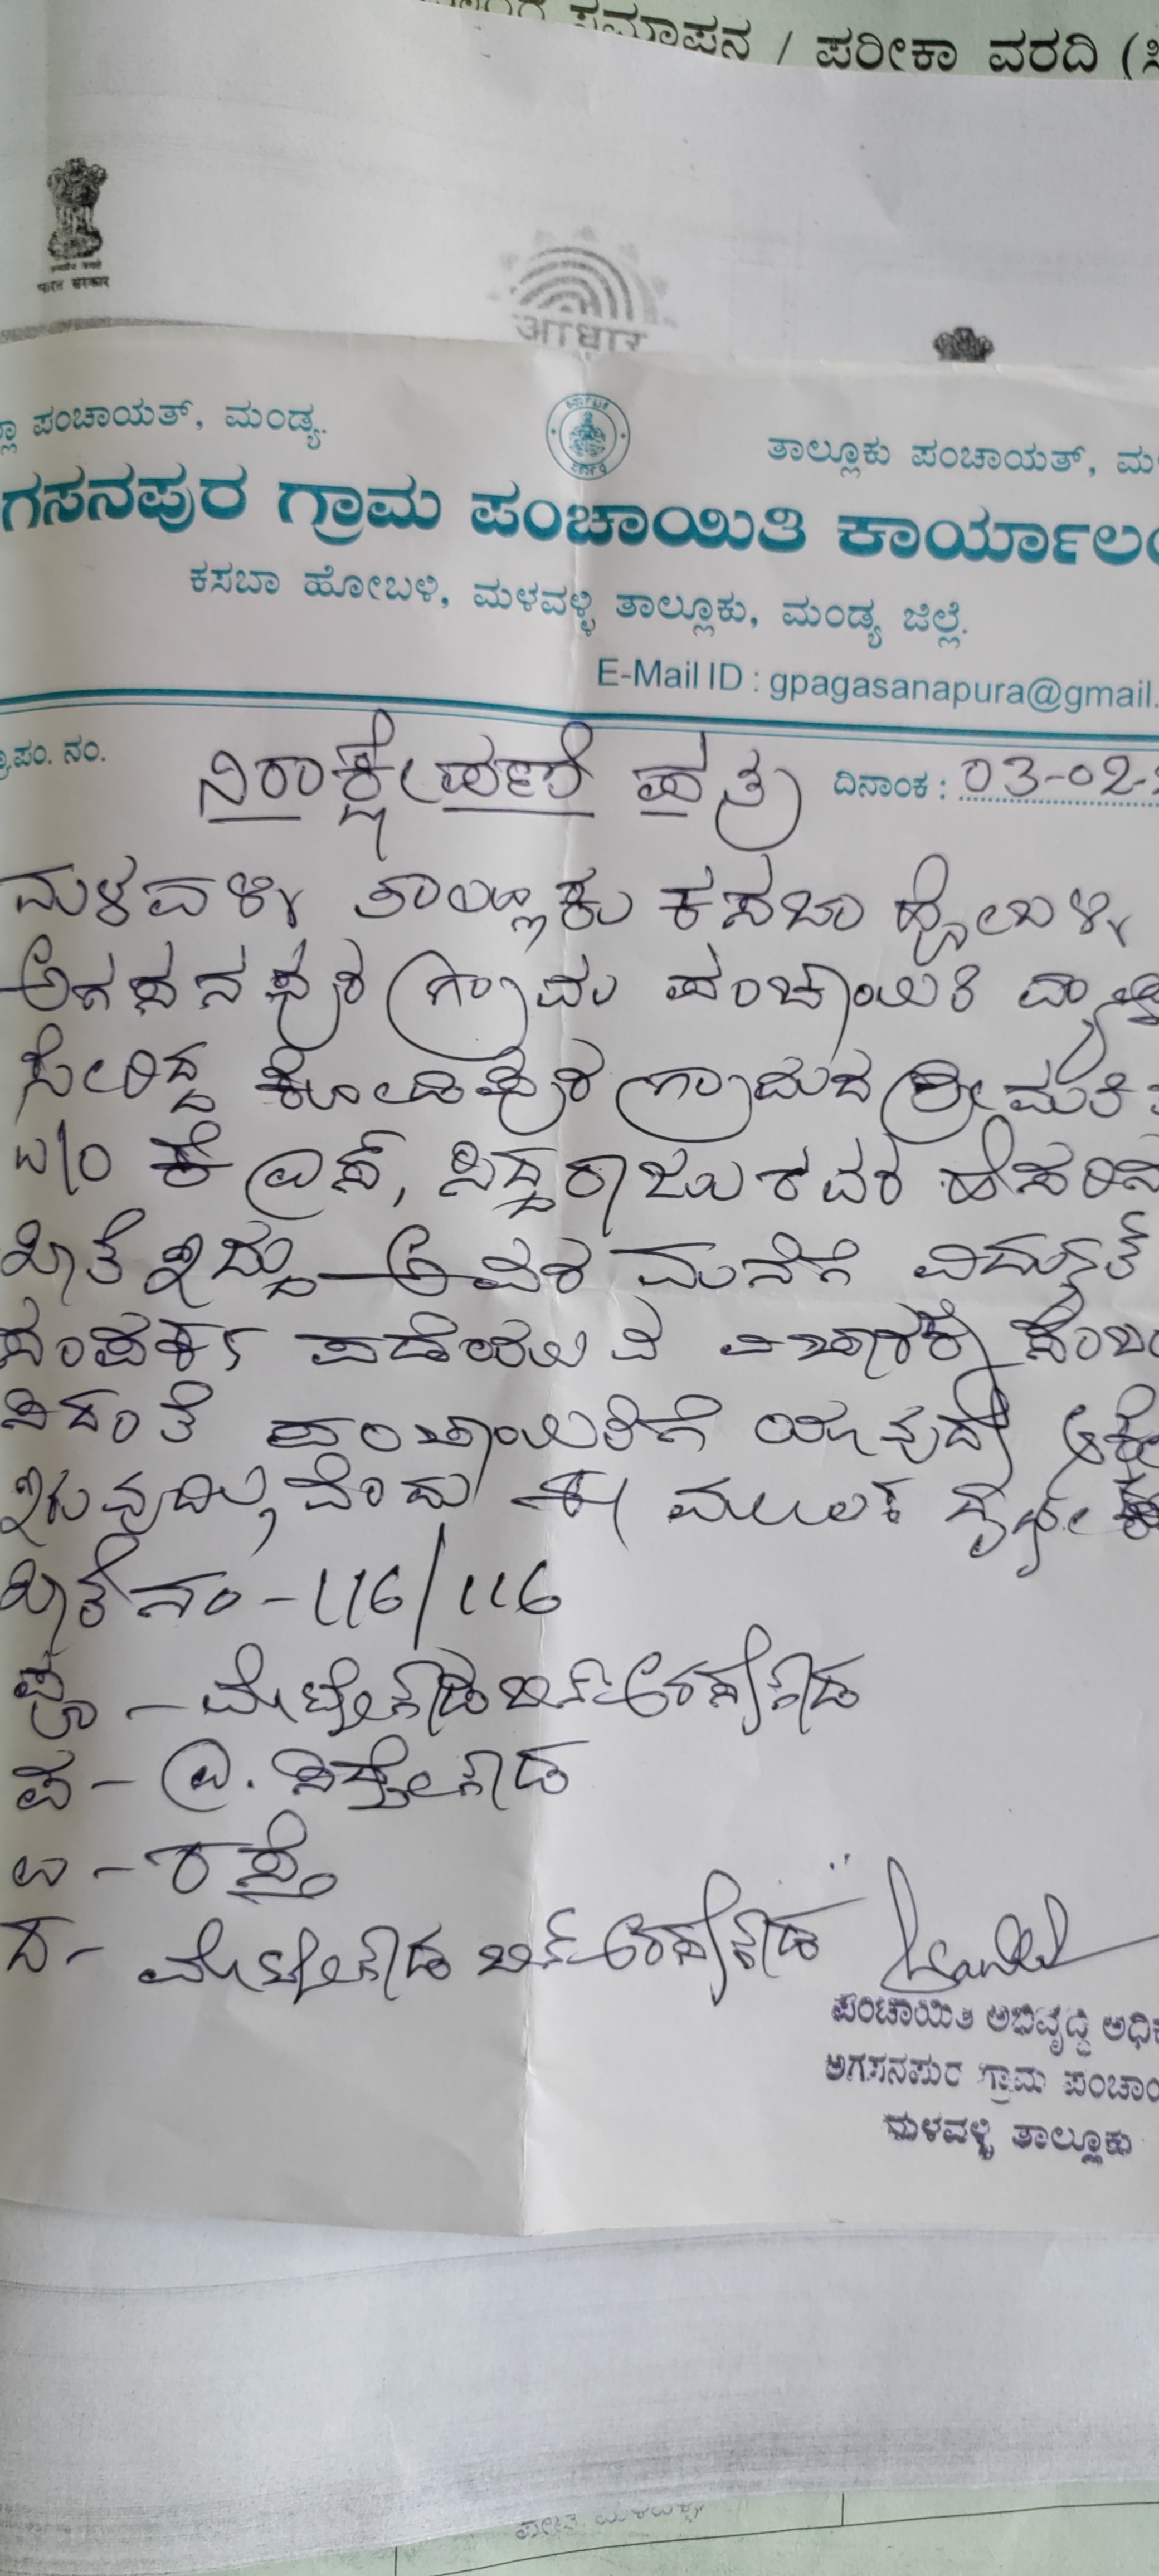 ಸಮಾಪನ / ಪರೀಕಾ ವರದಿ (ಸಿ
भारत सरकार
आधार
ಲ್ಲಾ ಪಂಚಾಯತ್, ಮಂಡ್ಯ.
ತಾಲ್ಲೂಕು ಪಂಚಾಯತ್, ಮ
ಗಸನಪುರ ಗ್ರಾಮ ಪಂಚಾಯಿತಿ ಕಾರ್ಯಾಲಯ
ಕಸಬಾ ಹೋಬಳಿ, ಮಳವಳ್ಳಿ ತಾಲ್ಲೂಕು, ಮಂಡ್ಯ ಜಿಲ್ಲೆ.
E-Mail ID : gpagasanapura@gmail.
ಗ್ರಾಪಂ. ನಂ.
ನಿರಾಕ್ಷೇಪಣೆ ಪತ್ರ
ದಿನಾಂಕ : 03-02-
ಮಳವಳ್ಳಿ ತಾಲ್ಲೂಕು ಕಸಬಾ ಹೋಬಳಿ
ಅಗಸನಪುರ ಗ್ರಾಮ ಪಂಚಾಯಿತಿ
ಸೇರಿದ್ದ ಕೋಡಿಪುರ ಗ್ರಾಮದ ಶ್ರೀಮತಿ
W/O ಕೆ ಎಸ್, ಸಿದ್ದರಾಜು ರವರ ಹೆಸರಿನ
ಖಾತೆ ಇದ್ದು ಅವರ ಮನೆಗೆ ವಿದ್ಯುತ್
ಸಂಪರ್ಕ ಪಡೆಯಲು ವಿಚಾರಕ್ಕೆ ಸಂಬಂ
ದಿಸಂತೆ ಪಂಚಾಯಿತಿಗೆ ಯಾವುದೇ ಆಕ್ಷೇ
ಇರುವುದಿಲ್ಲವೆಂದು ಈ ಮೂಲಕ
ಖಾತೆ ನಂ - 116/116
ಪೂ - ಮೊಳ್ಳೇಗೌಡ ಬಿನ್ ಅರಸೇಗೌಡ
ಪ - ವಿ. ಸಿದ್ದೇಗೌಡ
ಉ - ರಸ್ತೆ
ದ - ಮೊಳ್ಳೇಗೌಡ ಬಿನ್ ಅರಸೇಗೌಡ
ಪಂಚಾಯಿತಿ ಅಭಿವೃದ್ಧಿ ಅಧಿಕ
ಅಗಸನಪುರ ಗ್ರಾಮ ಪಂಚಾಯ
ಮಳವಳ್ಳಿ ತಾಲ್ಲೂಕು